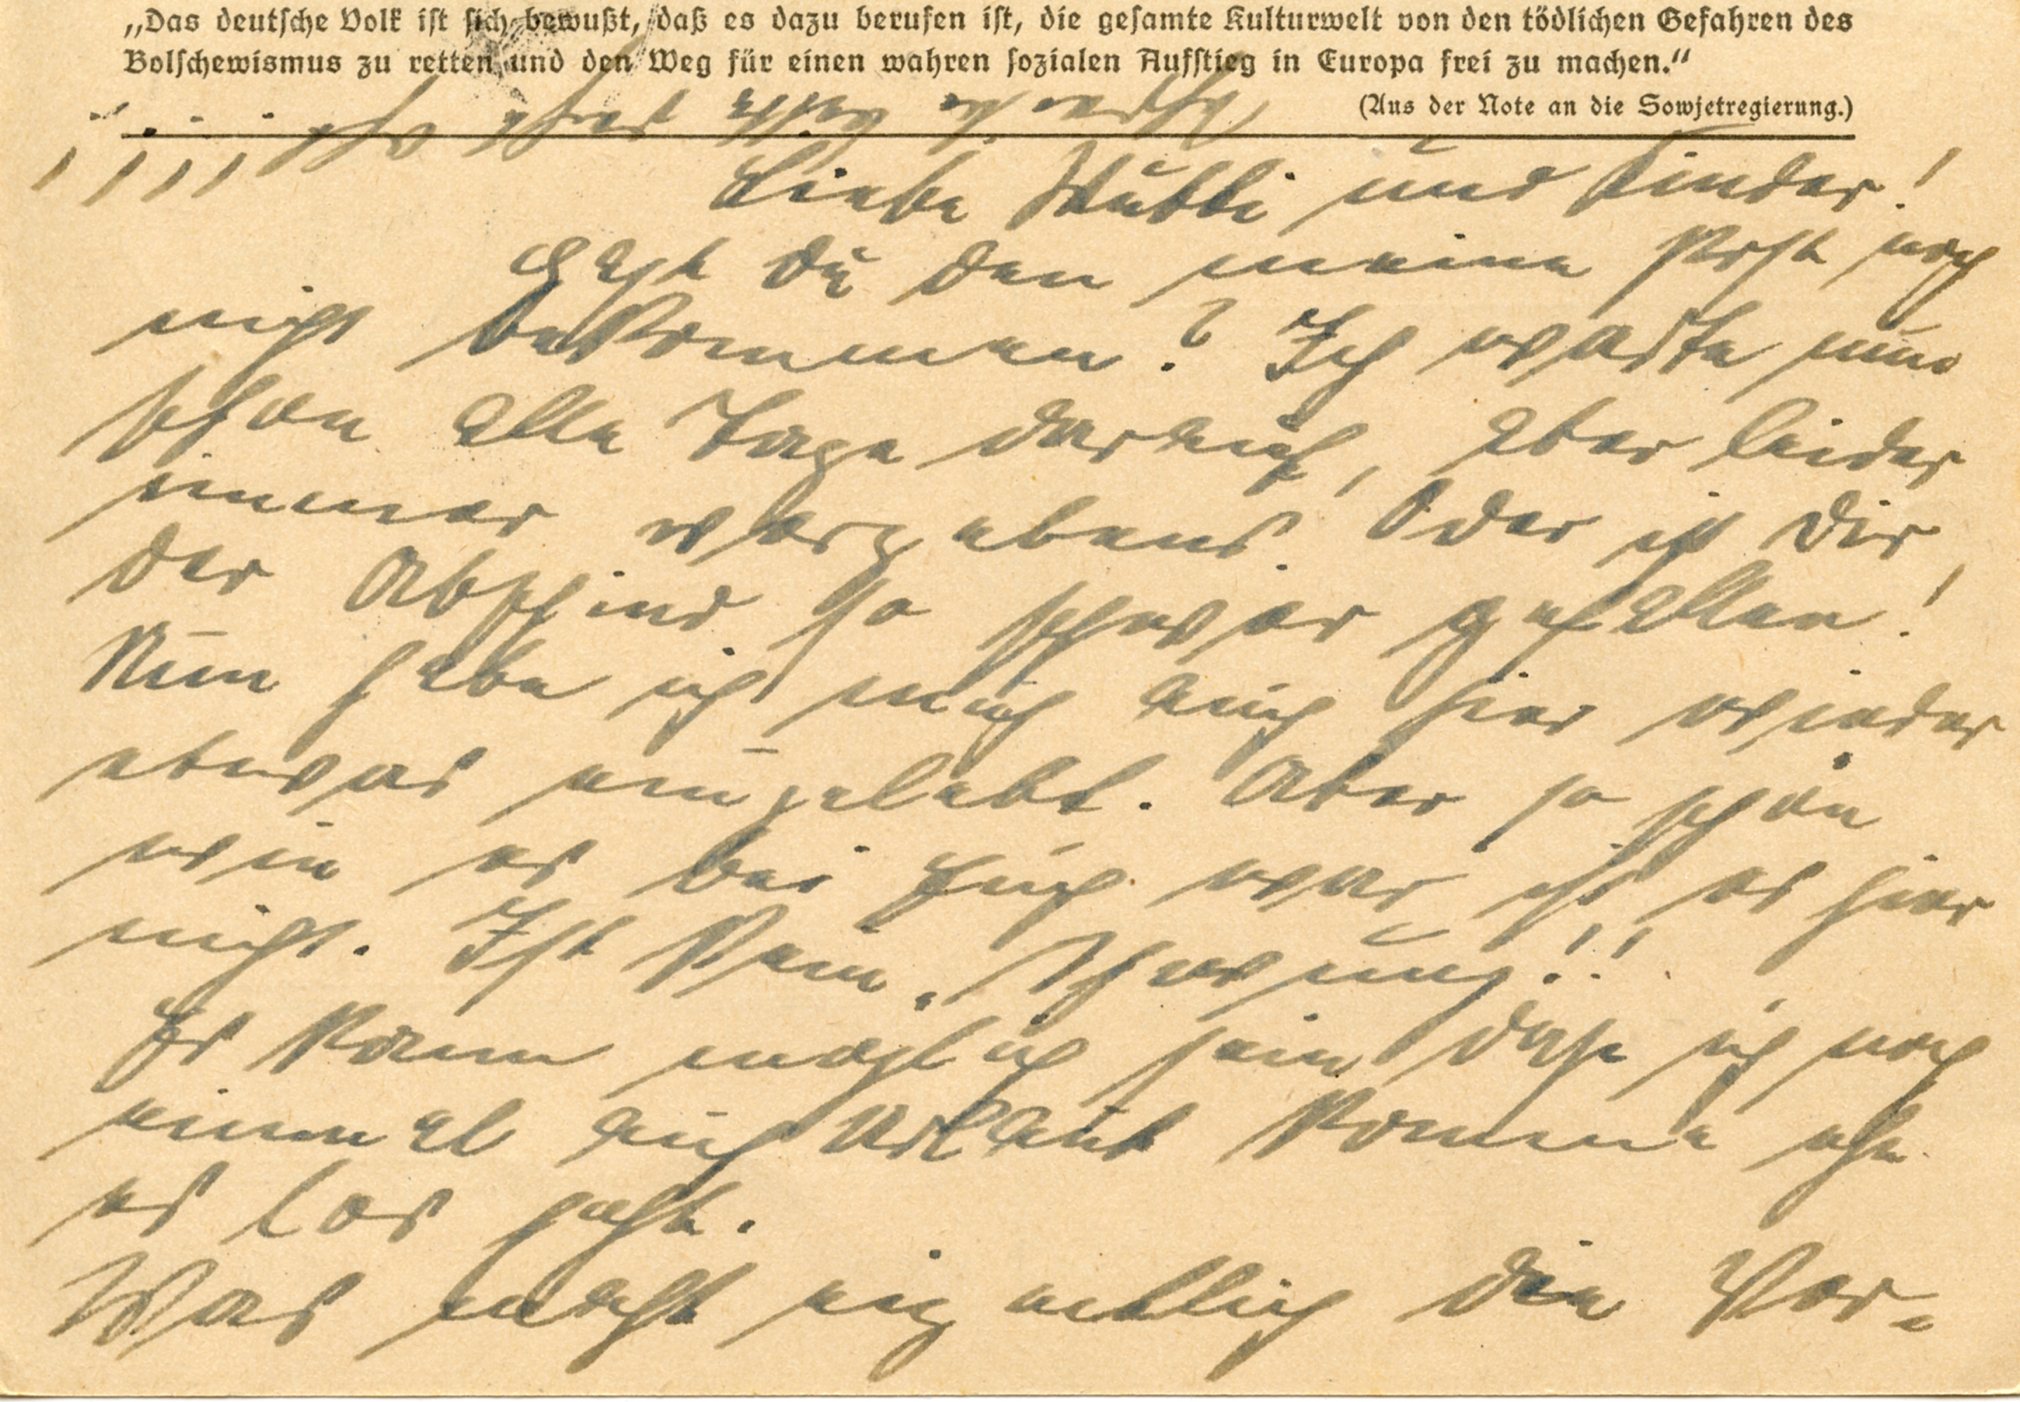 „Das deutsche Volk ist sich bewußt, daß es dazu berufen ist, die gesamte Kulturwelt von den tödlichen Gefahren des
Bolschewismus zu retten und den Weg für einen wahren sozialen Aufstieg in Europa frei zu machen.“
(Aus der Note an die Sowjetregierung.)
Liebe Mutti und Kinder!
Hast Du den meine Post noch
nicht bekommen? Ich warte nun
schon alle Tage darauf, aber leider
immer vergebens. Oder ist Dir,
der Abschied so schwer gefallen!
Nun habe ich mich auch hier wieder
etwas eingelebt. Aber so schön
wie es bei Euch war ist es hier
nicht. Ist kein Schwung!!
Es kann möglich sein dass ich noch
einmal auf Urlaub komme ehe
es los geht.
Was macht eigentlich die Vor-